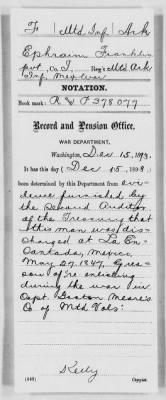 F | Mtd. Inf. | Ark
Ephraim Franklin
pvt., Co. I, Reg't Mtd Ark
Inf. Mex War
NOTATION.
Book mark: R & P 378077
Record and Pension Office,
WAR DEPARTMENT,
Washington, Dec 15, 1893.
It has this day (Dec 15, 1893)
been determined by this Department from evi-
dence furnished by
the Second Auditor
of the Treasury that
this man was dis-
charged at La En-
Cantada, Mexico,
May 27, 1847, by rea-
son of re-enlisting
during the war in
Capt. Gaston Meares
Co of Mtd Vols:
Kelly
(440)
Copyist.